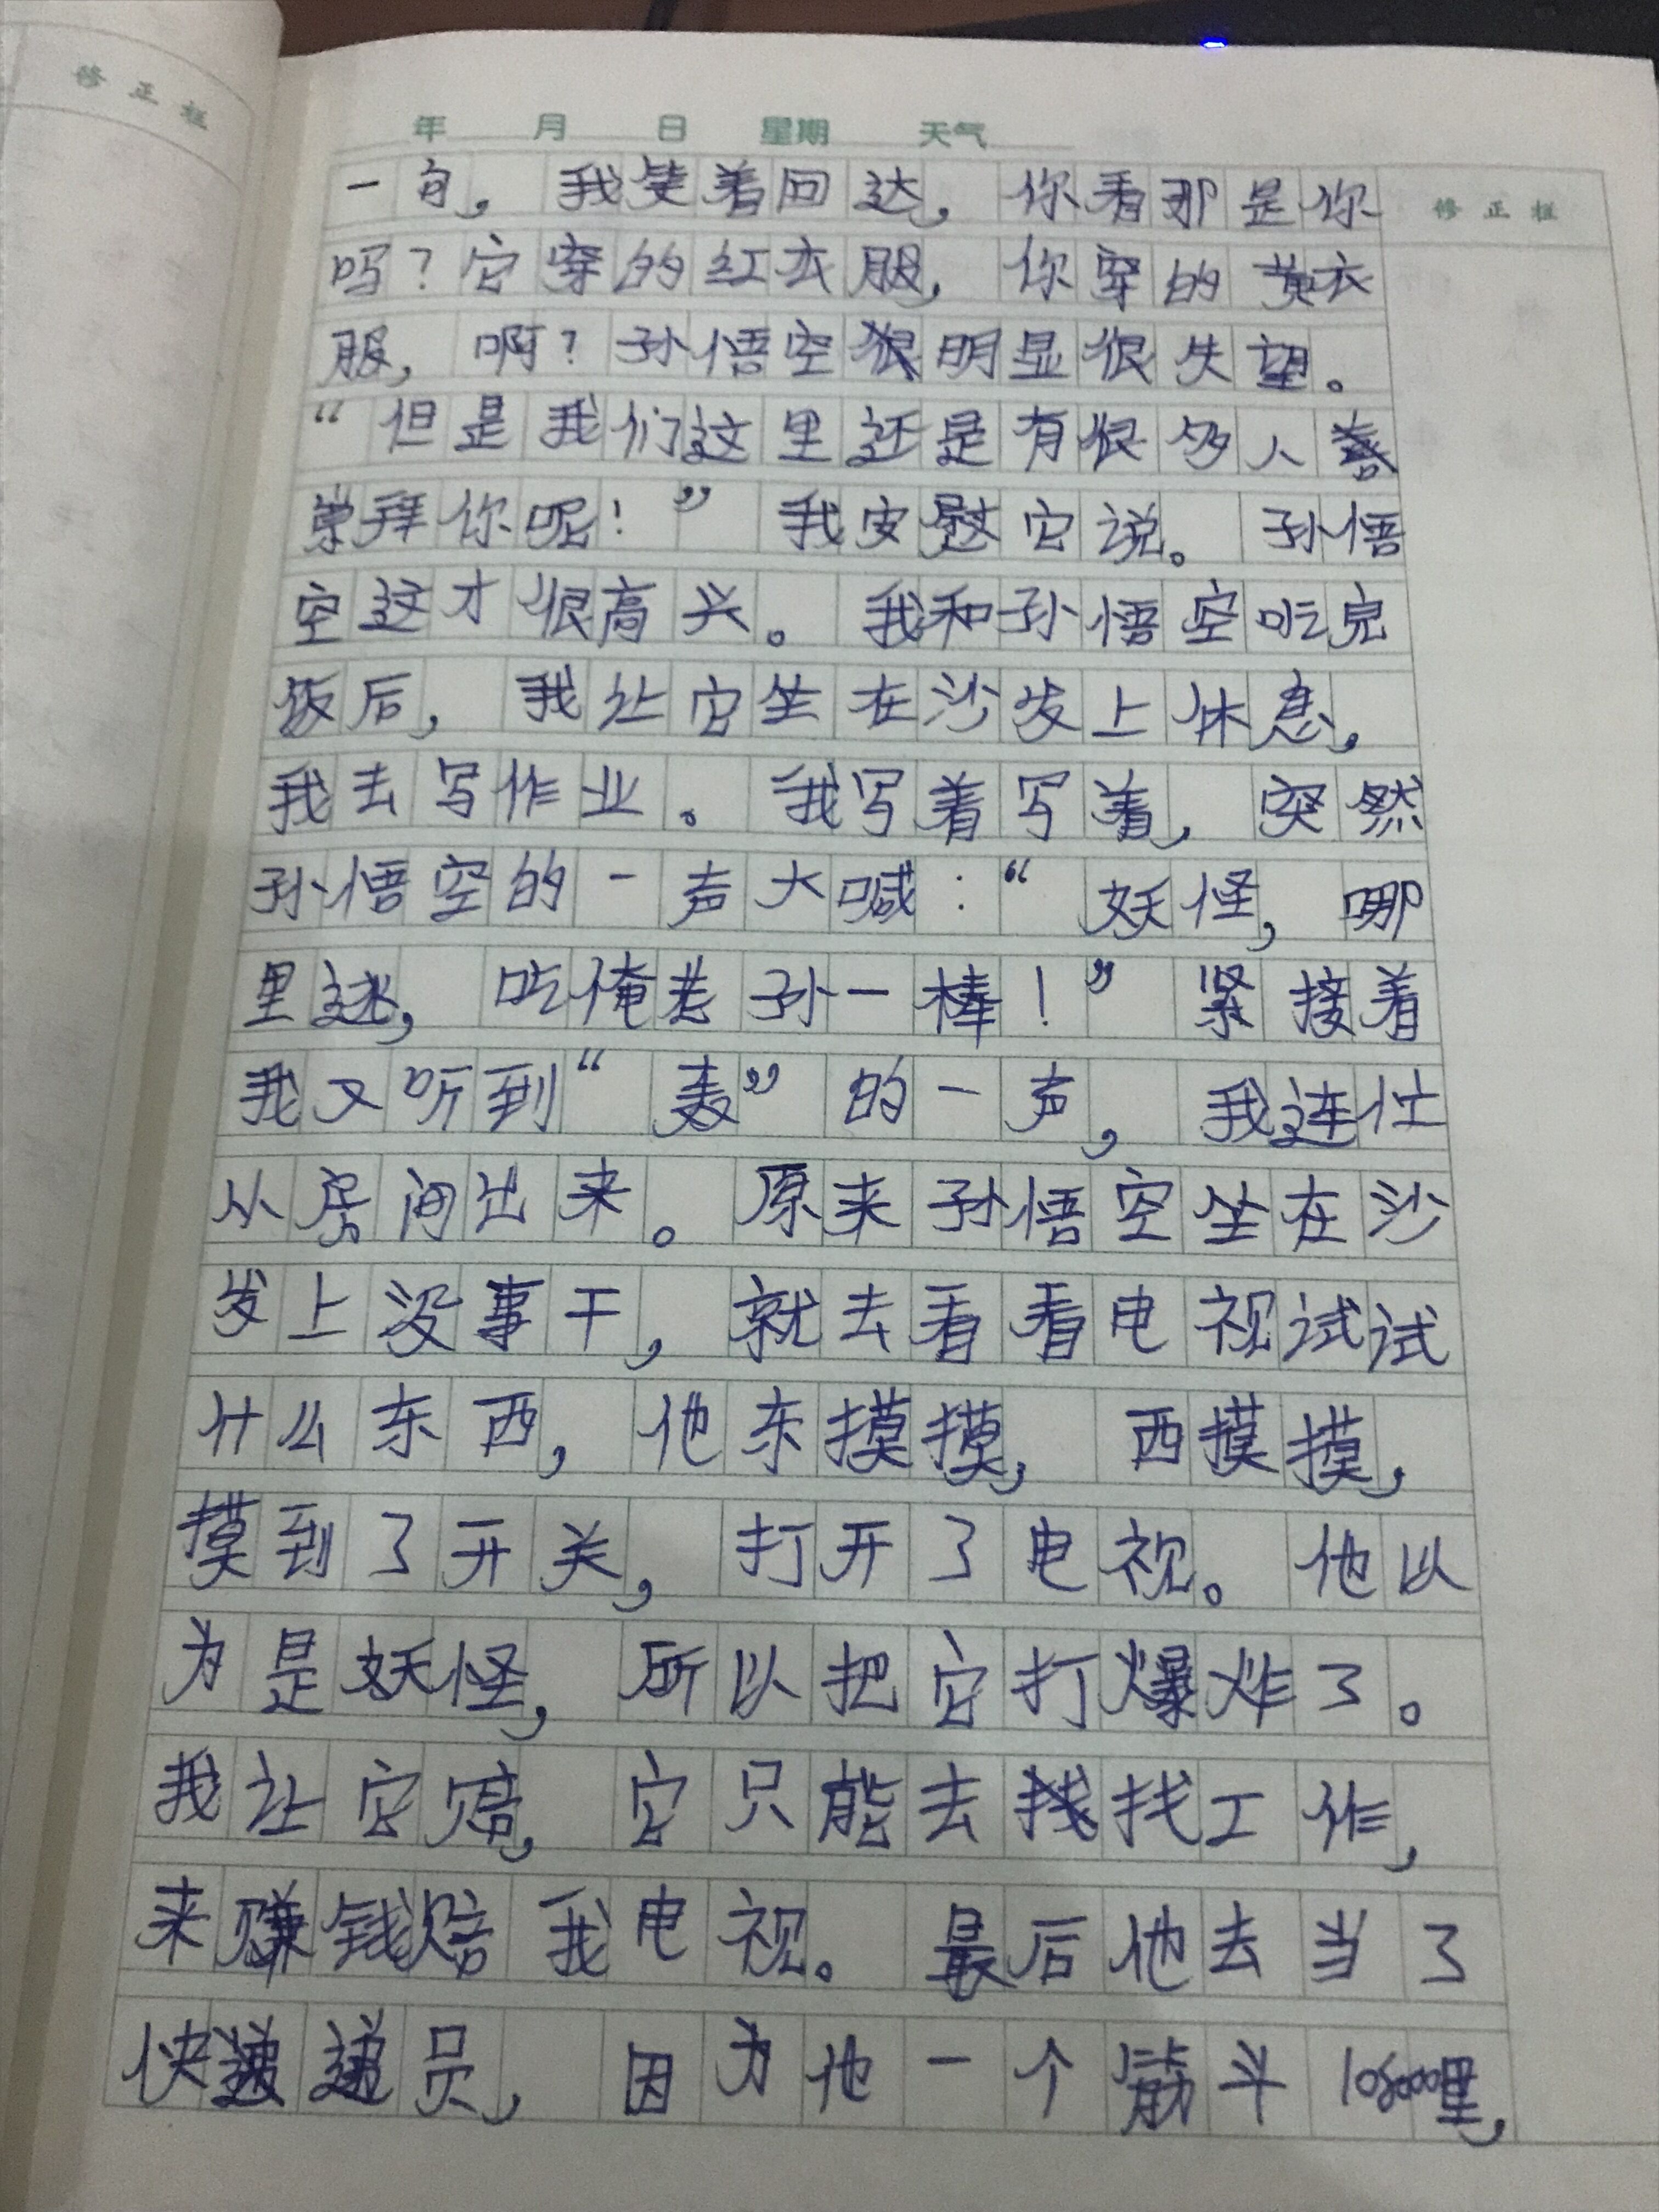 修正栏
年 月 日 星期 天气
修正栏
一句，我笑着回达，你看那是你
吗？它穿的红衣服，你穿的黄衣
服，啊？孙悟空很明显很失望。
“但是我们这里还是有很多人
崇拜你呢！”我安慰它说。孙悟
空这才很高兴。我和孙悟空吃完
饭后，我让它坐在沙发上休息，
我去写作业。我写着写着，突然
孙悟空的一声大喊：“妖怪，哪
里逃，吃俺老孙一棒！”紧接着
我又听到“轰”的一声，我连忙
从房间出来。原来孙悟空坐在沙
发上没事干，就去看看电视试试
什么东西，他东摸摸，西摸摸，
摸到了开关，打开了电视。他以
为是妖怪，所以把它打爆炸了。
我让它赔，它只能去找工作，
来赚钱赔我电视。最后他去当了
快递员，因为他一个筋斗108000里，